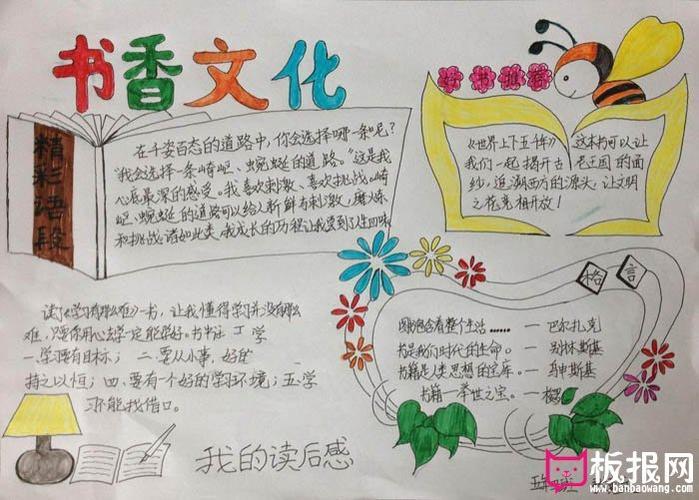 书香文化
好书推荐
精彩语段
在千姿百态的道路中，你会选择哪一条呢？
"我会选择一条崎岖、蜿蜒的道路。"这是我
心底最深的感受。我喜欢刺激、喜欢挑战。崎
岖、蜿蜒的道路可以给人新鲜有刺激，磨炼
和挑战。诸如此类，我成长的历程让我尝到了人生回味
《世界上下五千年》这本书可以让
我们一起揭开古老王国的面
纱，追溯西方的源头，让文明
之花竞相开放！
格言
读了《学习有那么难》一书，让我懂得学习并没有那么
难，只要你用心去学一定能学好。书中
一.学习要有目标；二.要从小事，好的
持之以恒；四.要有一个好的学习环境；五.学
习不能找借口。
包含着整个生活……——巴尔扎克
书是我们时代的生命。——别林斯基
书籍是人类思想的宝库。——乌申斯基
书籍——举世之宝。——梭罗
我的读后感
板报网
www.banbaowang.com